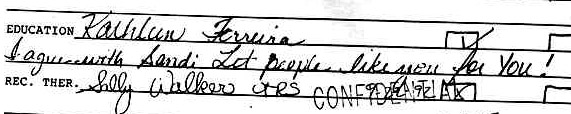 EDUCATION Kathleen Ferreira
I agree with Sandi Let people like you for You!
REC. THER. Sally Walker TRS CONFIDENTIAL